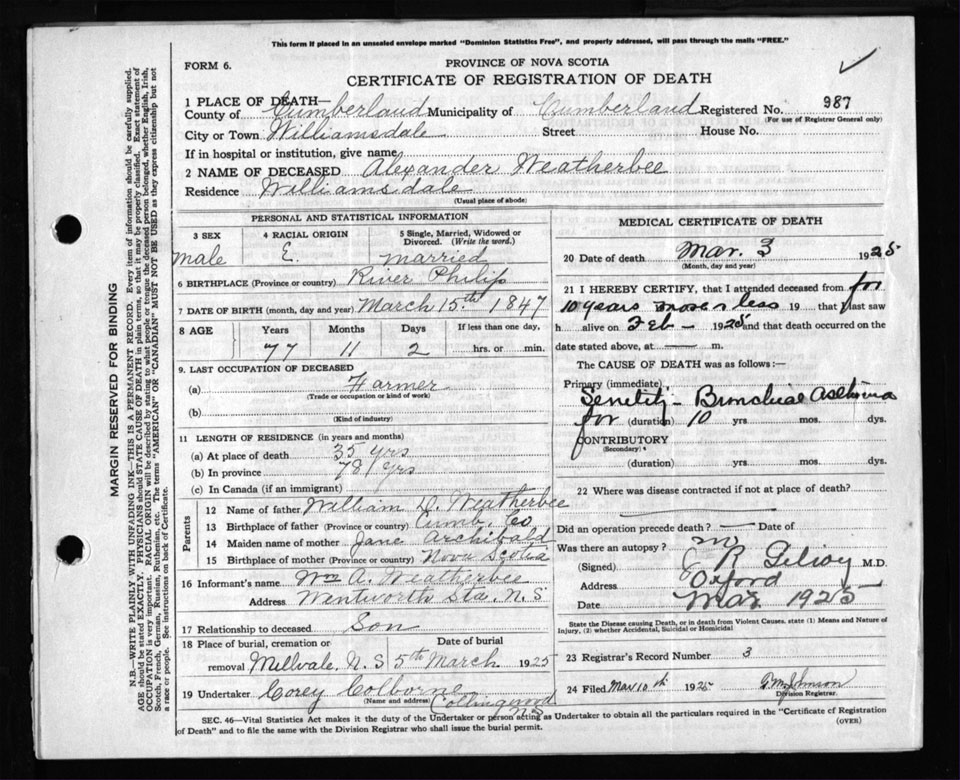 This form if placed in an unsealed envelope marked "Dominion Statistics Free", and properly addressed, will pass through the mails "FREE."
FORM 6.
PROVINCE OF NOVA SCOTIA
CERTIFICATE OF REGISTRATION OF DEATH
1 PLACE OF DEATH—
County of Cumberland Municipality of Cumberland Registered No. 987
(For use of Registrar General only)
City or Town Williamsdale Street House No.
If in hospital or institution, give name
2 NAME OF DECEASED Alexander Weatherbee
Residence Williamsdale
(Usual place of abode)
PERSONAL AND STATISTICAL INFORMATION
3 SEX 4 RACIAL ORIGIN 5 Single, Married, Widowed or Divorced. (Write the word.)
male E. married
6 BIRTHPLACE (Province or country) River Philip
7 DATE OF BIRTH (month, day and year) March 15th 1847
8 AGE Years Months Days If less than one day,
77 11 2 hrs. or min.
9. LAST OCCUPATION OF DECEASED
(a) Farmer
(Trade or occupation or kind of work)
(b)
(Kind of industry)
11 LENGTH OF RESIDENCE (in years and months)
(a) At place of death 35 yrs
(b) In province 78 yrs
(c) In Canada (if an immigrant)
Parents
12 Name of father William D. Weatherbee
13 Birthplace of father (Province or country) Cumb. Co
14 Maiden name of mother Jane Archibald
15 Birthplace of mother (Province or country) Nova Scotia
16 Informant's name Wm A. Weatherbee
Address Wentworth Sta. N. S
17 Relationship to deceased Son
18 Place of burial, cremation or Date of burial
removal Millvale, N. S 5th March 1925
19 Undertaker Corey Colborne
(Name and address) Collingwood
N S
MEDICAL CERTIFICATE OF DEATH
20 Date of death Mar. 3 1925
(Month, day and year)
21 I HEREBY CERTIFY, that I attended deceased from for
10 years more or less 19 that I last saw
h alive on Feb — 1925 and that death occurred on
date stated above, at — m.
The CAUSE OF DEATH was as follows:—
Primary (immediate)
Senility - Bronchial Asthma
for (duration) 10 yrs mos. dys.
CONTRIBUTORY
(Secondary)
(duration) yrs. mos. dys.
22 Where was disease contracted if not at place of death?
Did an operation precede death? — Date of
Was there an autopsy? no
(Signed) M.D.
Address Oxford
Date Mar 1925
State the Disease causing Death, or in death from Violent Causes, state (1) Means and Nature of
Injury, (2) whether Accidental, Suicidal or Homicidal
23 Registrar's Record Number 3
24 Filed Mar 10th 1925 Johnson
Division Registrar.
SEC. 46—Vital Statistics Act makes it the duty of the Undertaker or person acting as Undertaker to obtain all the particulars required in the "Certificate of Registration
of Death" and to file the same with the Division Registrar who shall issue the burial permit.
(OVER)
MARGIN RESERVED FOR BINDING
N.B.—WRITE PLAINLY WITH UNFADING INK—THIS IS A PERMANENT RECORD. Every item of information should be carefully supplied.
AGE should be stated EXACTLY. PHYSICIANS should STATE CAUSE OF DEATH in plain terms, so that it may be properly classified. Exact statement of
OCCUPATION is very important. RACIAL ORIGIN will be described by stating to what people or tongue the deceased person belonged, whether English, Irish,
Scotch, French, German, Russian, Ruthenian, etc. The terms "AMERICAN" OR "CANADIAN" MUST NOT BE USED as they express citizenship but not
a race or people. See instructions on back of Certificate.